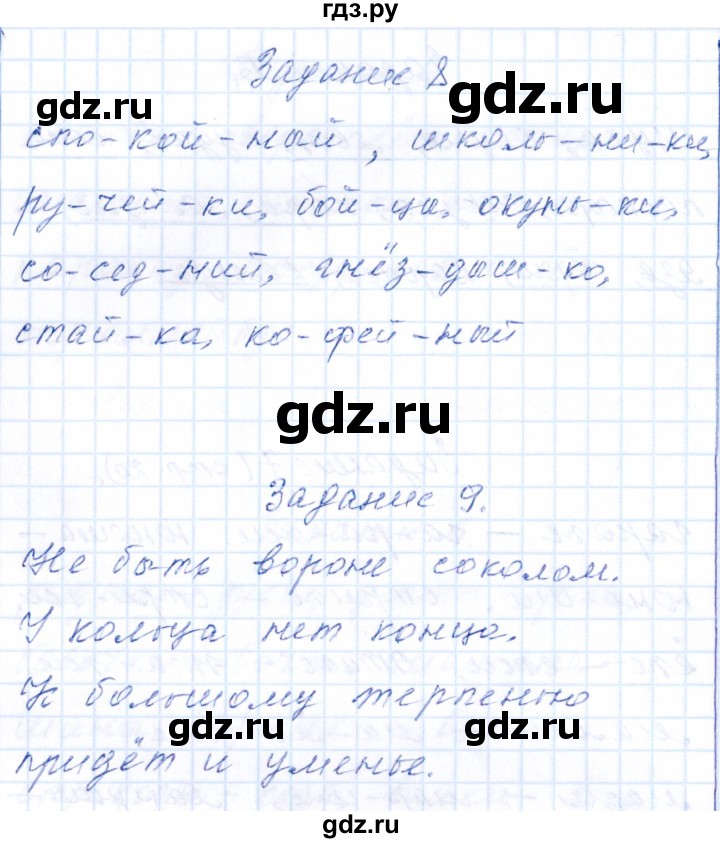 гдз.ру
Задание 8
gdz.ru
gdz.ru
спо-кой-ный, школь-ни-ки,
ру-чей-ки, бой-цы, окунь-ки,
со-сед-ний, гнёз-дыш-ко,
стай-ка, ко-фей-ный
gdz.ru
Задание 9.
Не быть вороне соколом.
У кольца нет конца.
К большому терпенью
gdz.ru
gdz.ru
придёт и уменье.
gdz.ru